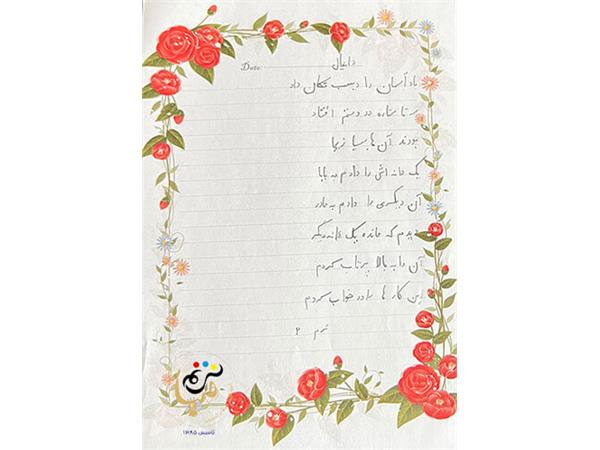 Date: دانیال
باد آسمان را دیشب تکان داد
سه تا ستاره در دستم افتاد
بودند آن ها بسیار زیبا
یک دانه اش را دادم به بابا
آن دیگری را دادم به مادر
دیدم که مانده یک دانه دیگر
آن را به بالا پرتاب کردم
این کار ها را در خواب کردم
ترم ۲
ترنم
تاسیس ۱۳۸۵